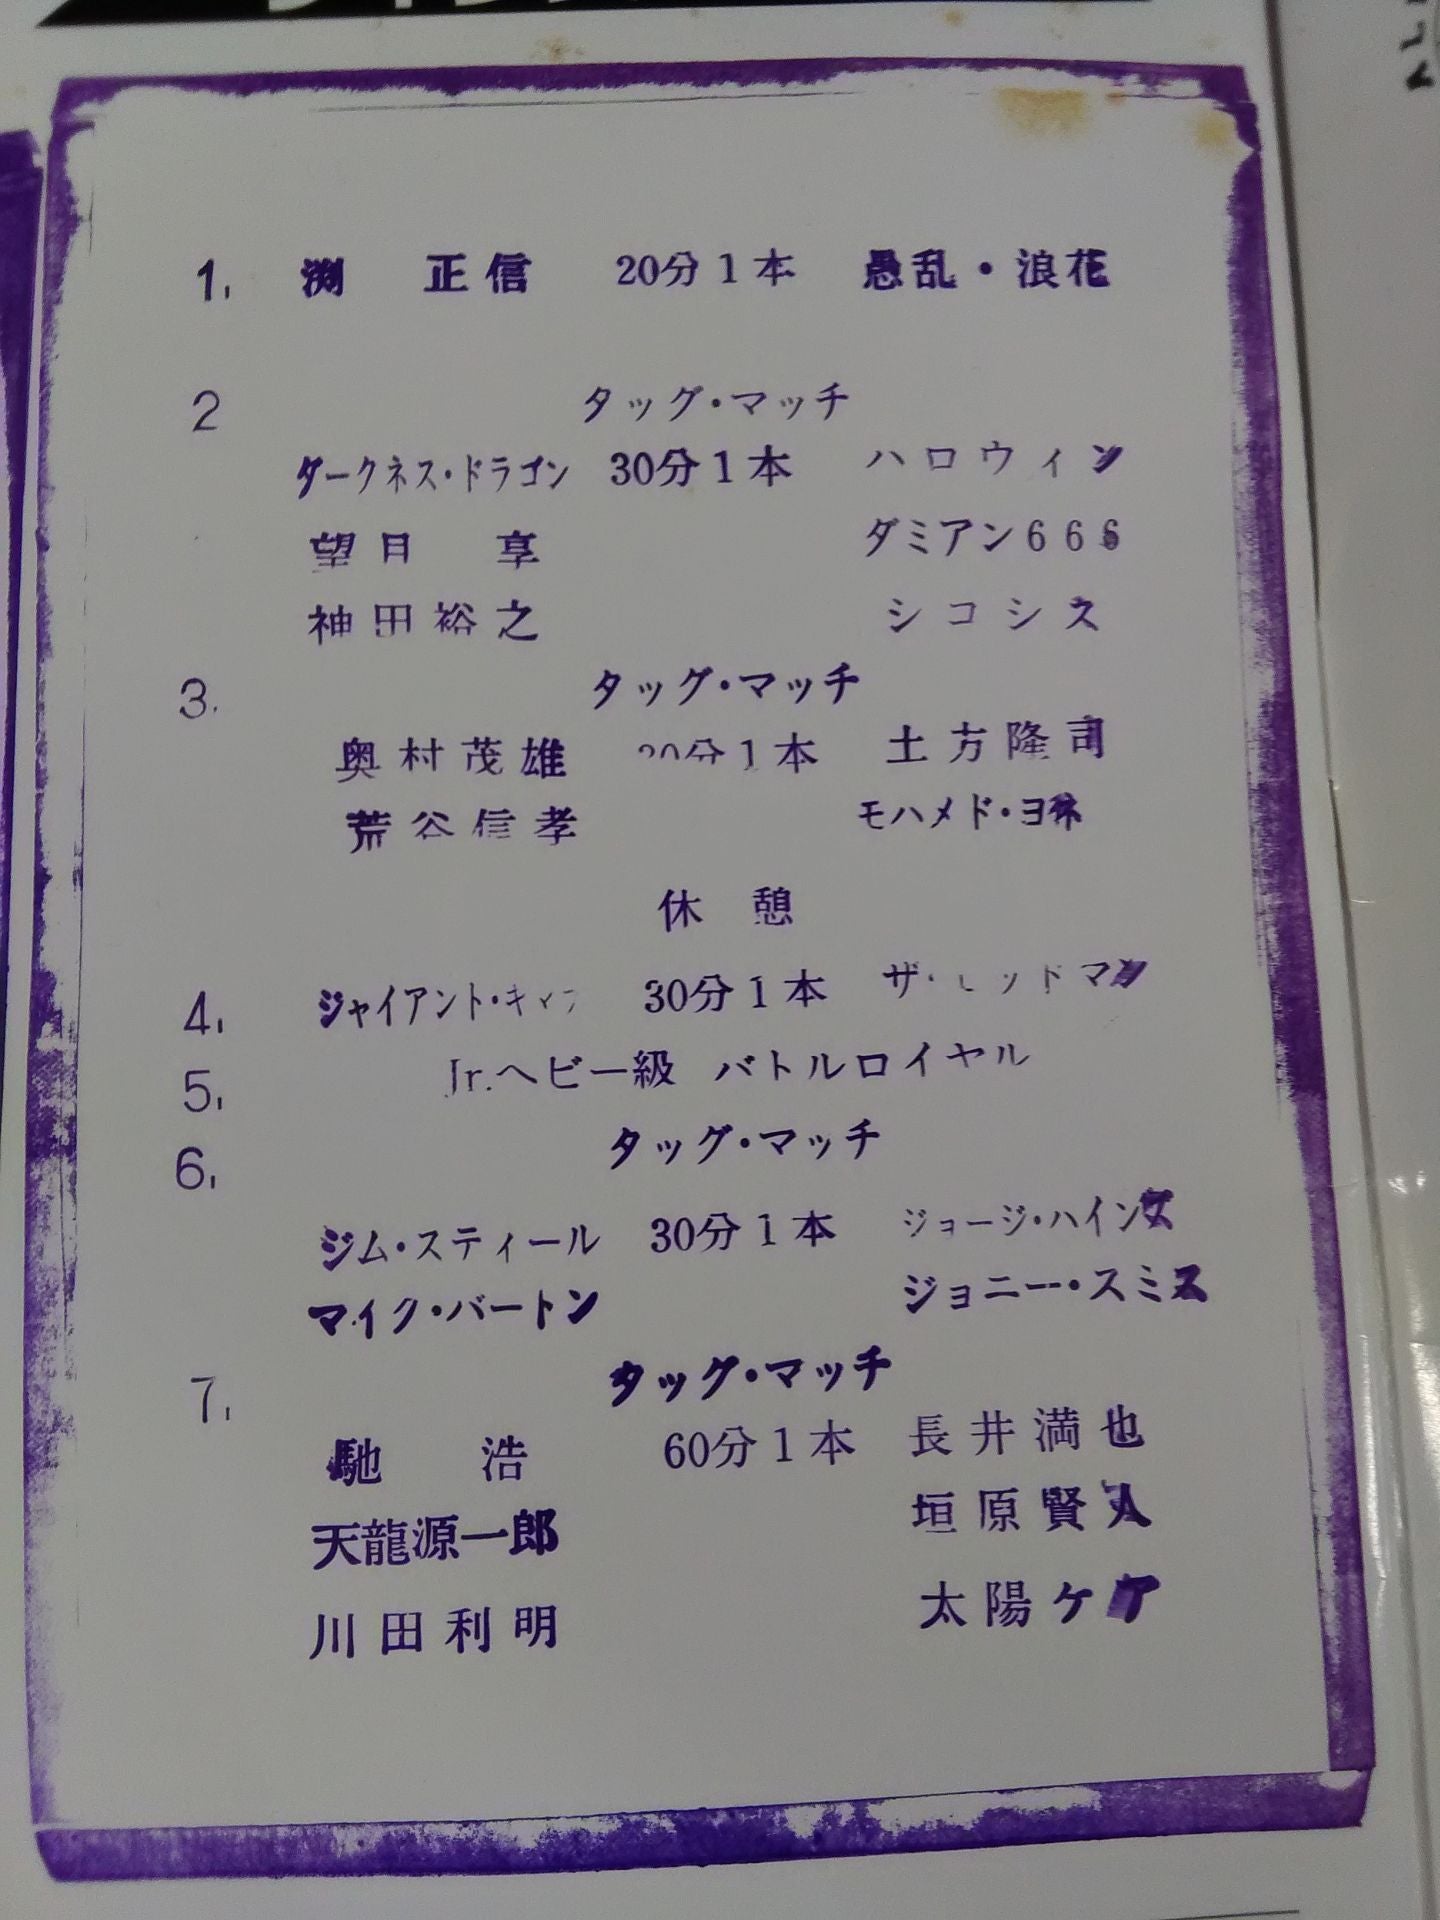 1. 渕 正信 20分1本 愚乱・浪花
2 タッグ・マッチ
ダークネス・ドラゴン 30分1本 ハロウィン
望月 享 ダミアン666
神田裕之 シコシス
3. タッグ・マッチ
奥村茂雄 20分1本 土方隆司
荒谷信孝 モハメド・ヨネ
休憩
4. ジャイアント・キマラ 30分1本 ザ・レッドマン
5. Jr.ヘビー級 バトルロイヤル
6. タッグ・マッチ
ジム・スティール 30分1本 ジョージ・ハインズ
マイク・バートン ジョニー・スミス
7. タッグ・マッチ
馳 浩 60分1本 長井満也
天龍源一郎 垣原賢人
川田利明 太陽ケア